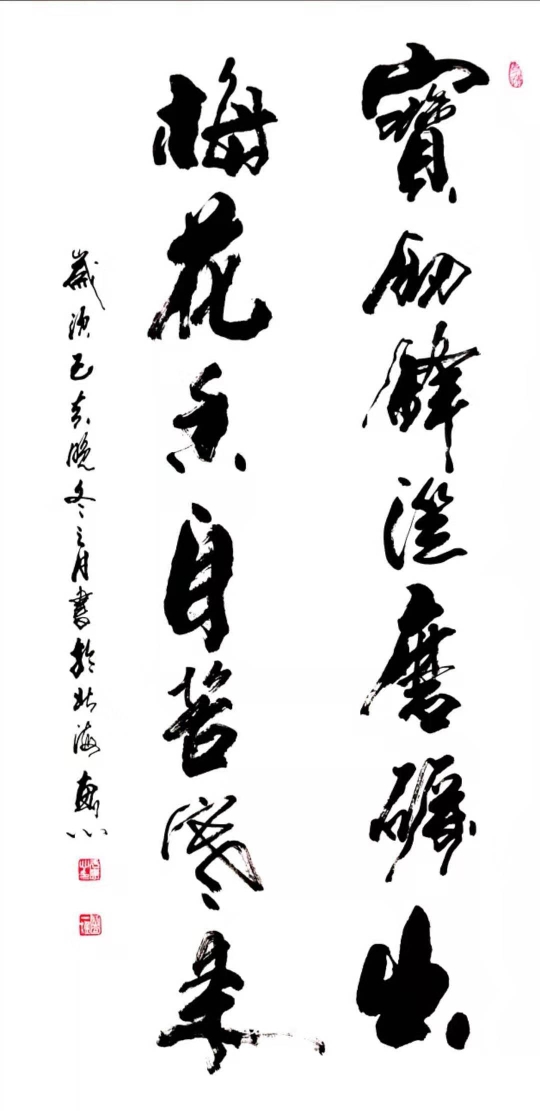 寶劍鋒從磨礪出
梅花香自苦寒來
歲次己亥晚冬之月書於北海